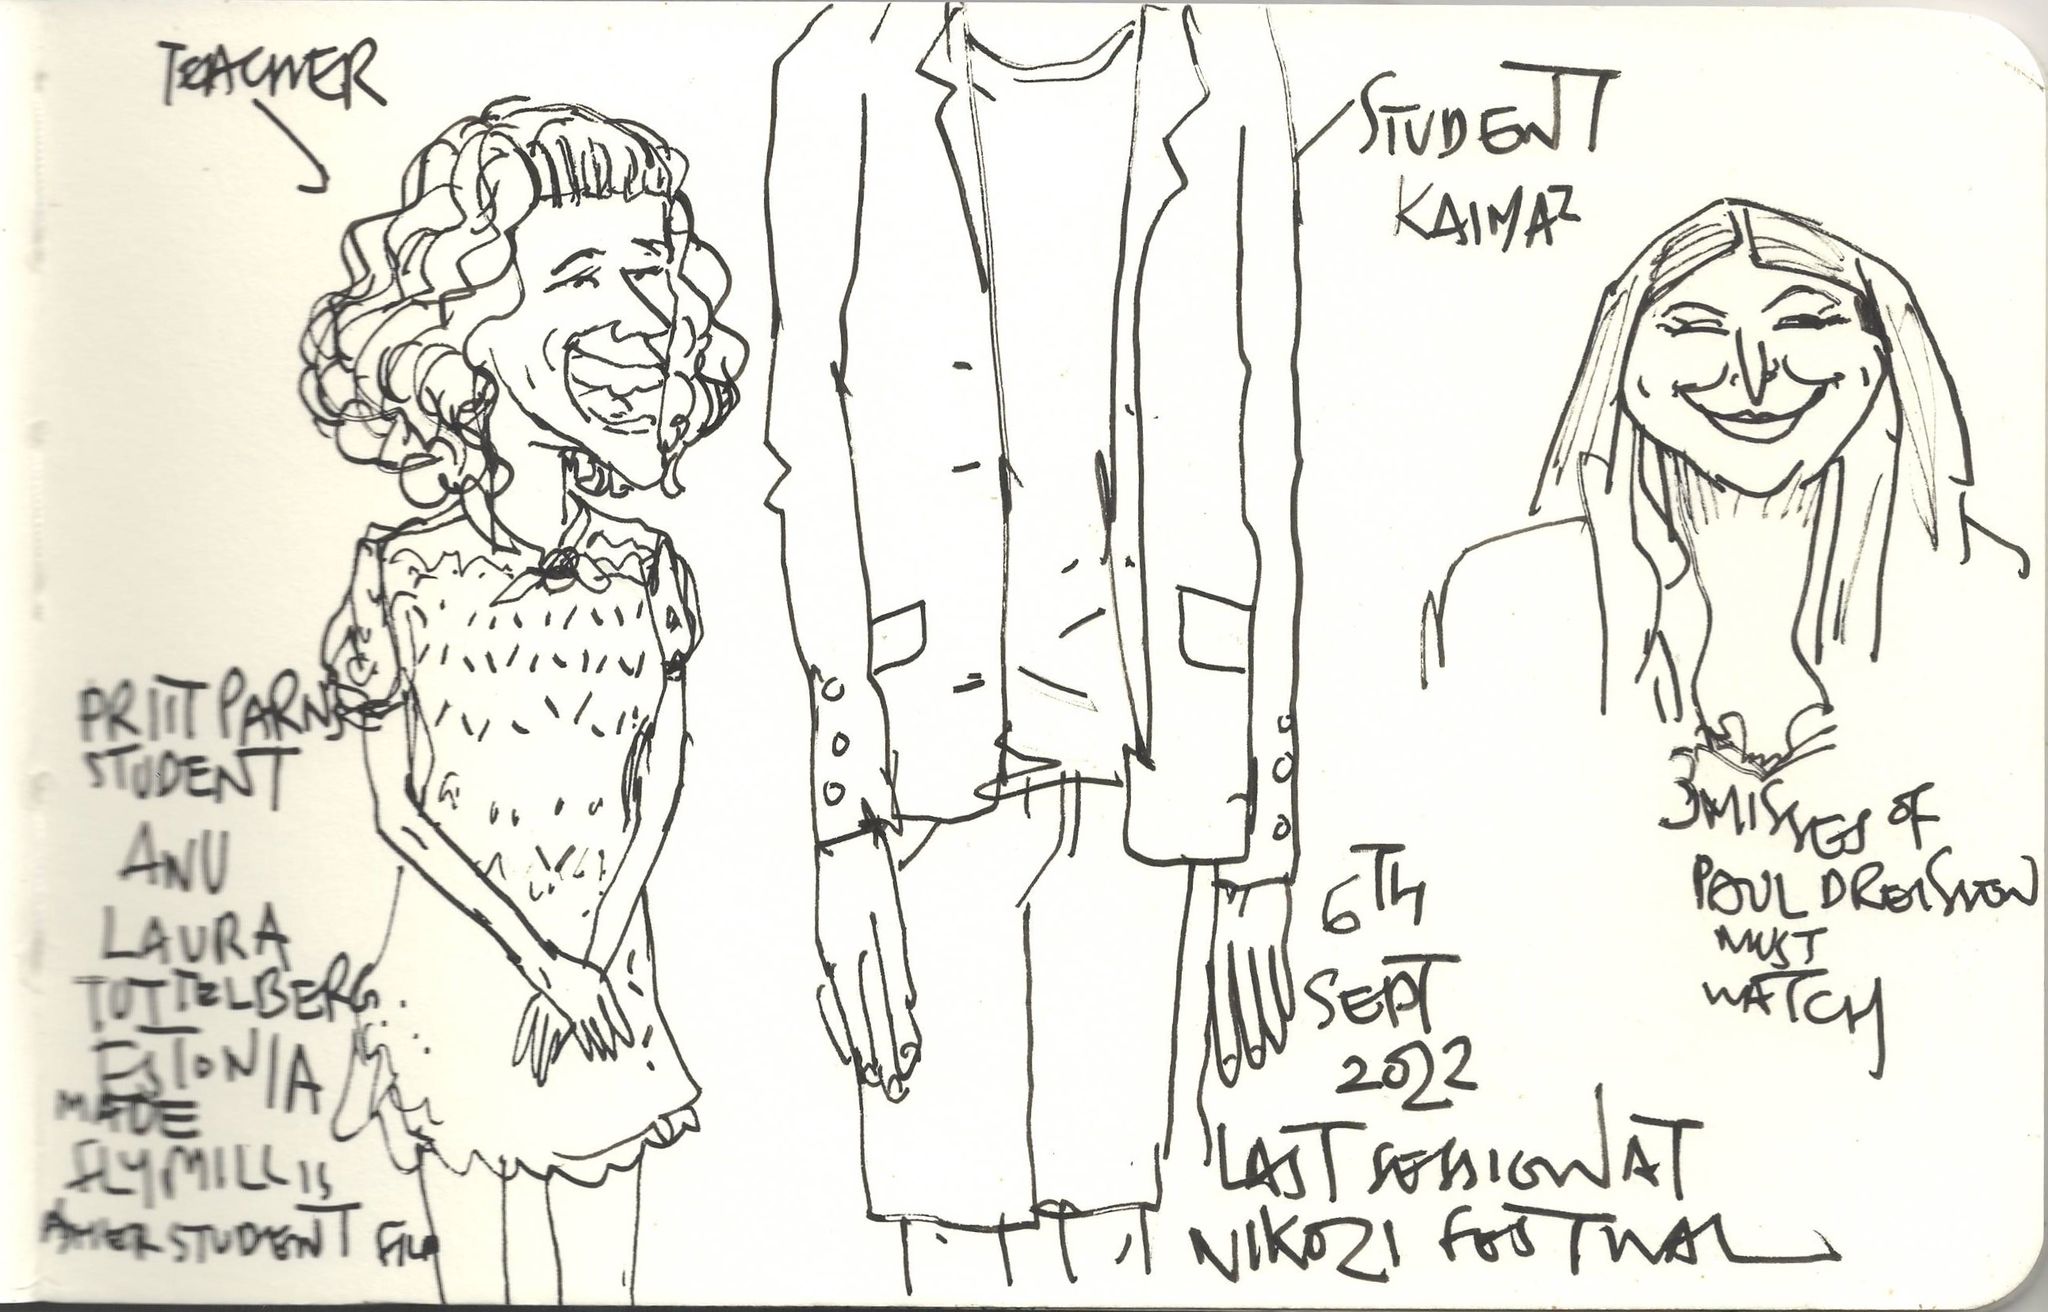 TEACHER
STUDENT
KAIMAZ
PRIIT PARNS
STUDENT
ANU
LAURA
TUTTELBERG
ESTONIA
MADE
FLY MILL IS
STUDENT FILM
3 MISSES OF
PAUL DREISSEN
MUST
WATCH
6TH
SEPT
2022
LAST SESSION AT
NIKOZI FESTIVAL